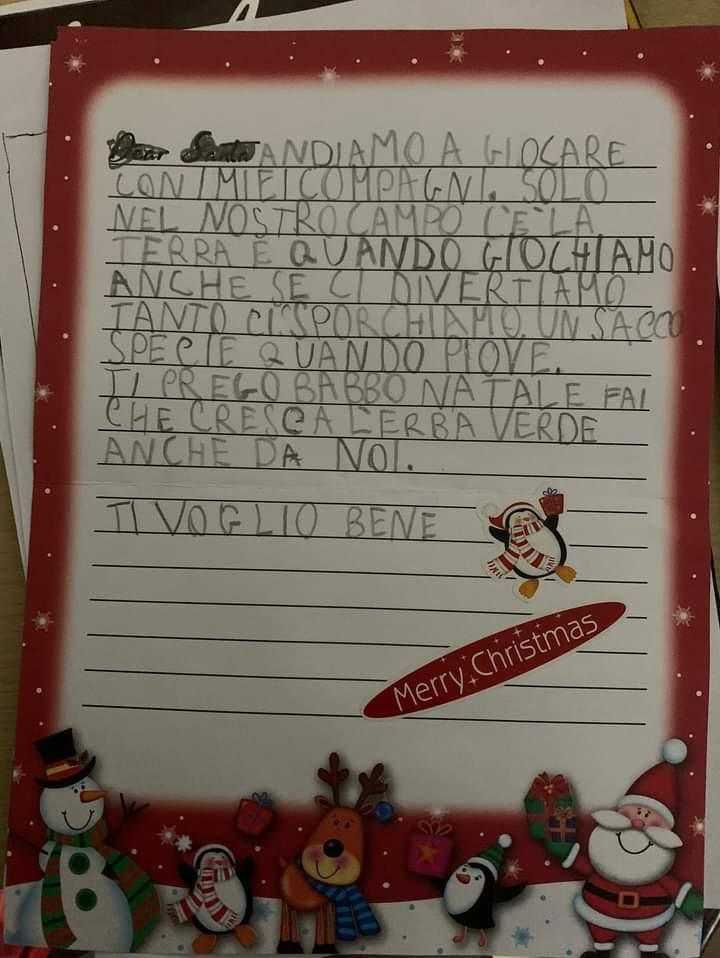 Dear Santa ANDIAMO A GIOCARE
CON I MIEI COMPAGNI. SOLO
NEL NOSTRO CAMPO C'E' LA
TERRA E QUANDO GIOCHIAMO
ANCHE SE CI DIVERTIAMO
TANTO CI SPORCHIAMO UN SACCO
SPECIE QUANDO PIOVE.
TI PREGO BABBO NATALE FAI
CHE CRESCA L'ERBA VERDE
ANCHE DA NOI.
TI VOGLIO BENE
Merry Christmas